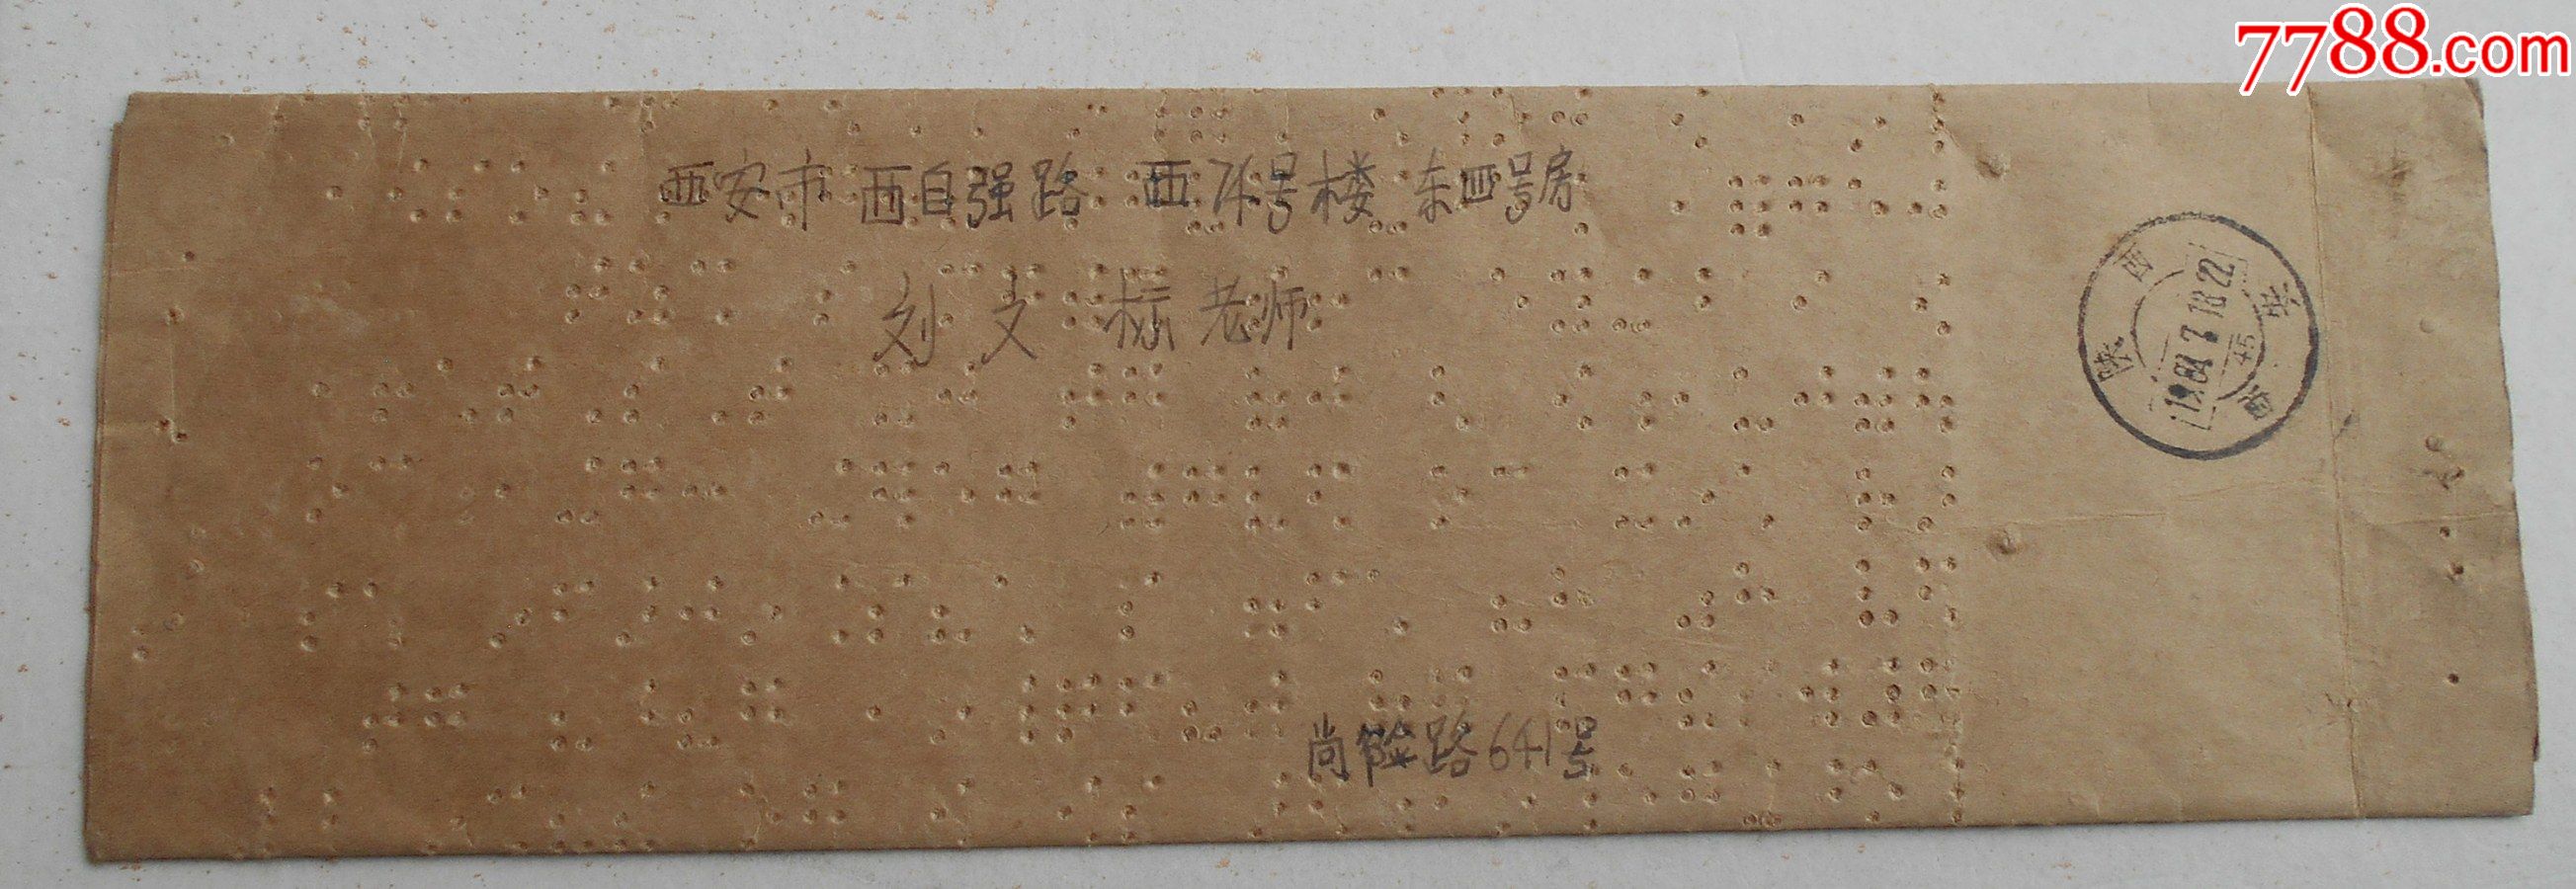 7788.com
西安市 西自强路 西74号楼 东四号房
刘文标老师
尚俭路641号
陕西
1984.7.18.22
45